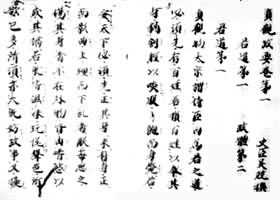 貞觀政要卷第一
史臣吳兢撰
君道第一　政體第二
君道第一
貞觀初太宗謂侍臣曰為君之道
必須先存百姓若損百姓以奉其
身猶割以啖腹腹飽而身斃若
安天下必須先正其身未有身正
而影曲上理而下亂者朕每思之
傷其身者不在外物皆由嗜欲以
成其禍若耽嗜滋味玩悅聲色所
欲已多所損亦大既妨政事又擾